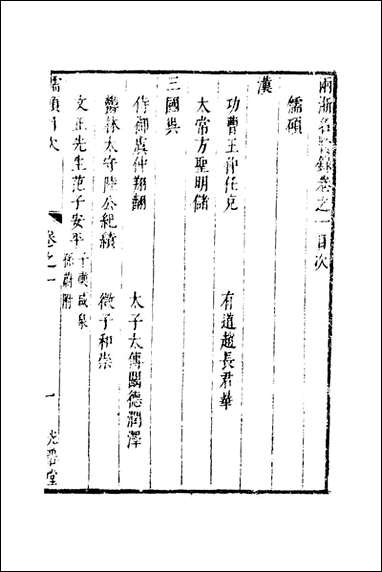 兩浙名賢錄卷之一目次
儒碩
漢
功曹王仲任充 有道趙長君華
太常方聖明儲
三國吳
侍御虞仲翔翻 太子太傅闞德潤澤
鬱林太守陸公紀績 徵子和崇
文正先生范子安平 子奭咸泉 孫蔚附
儒碩目次 卷之一 一 光碧堂